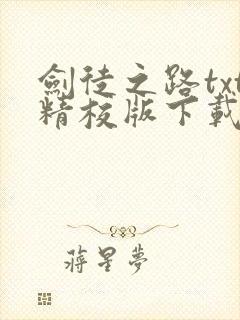 劍徒之路txt
精校版下載
蔣星夢